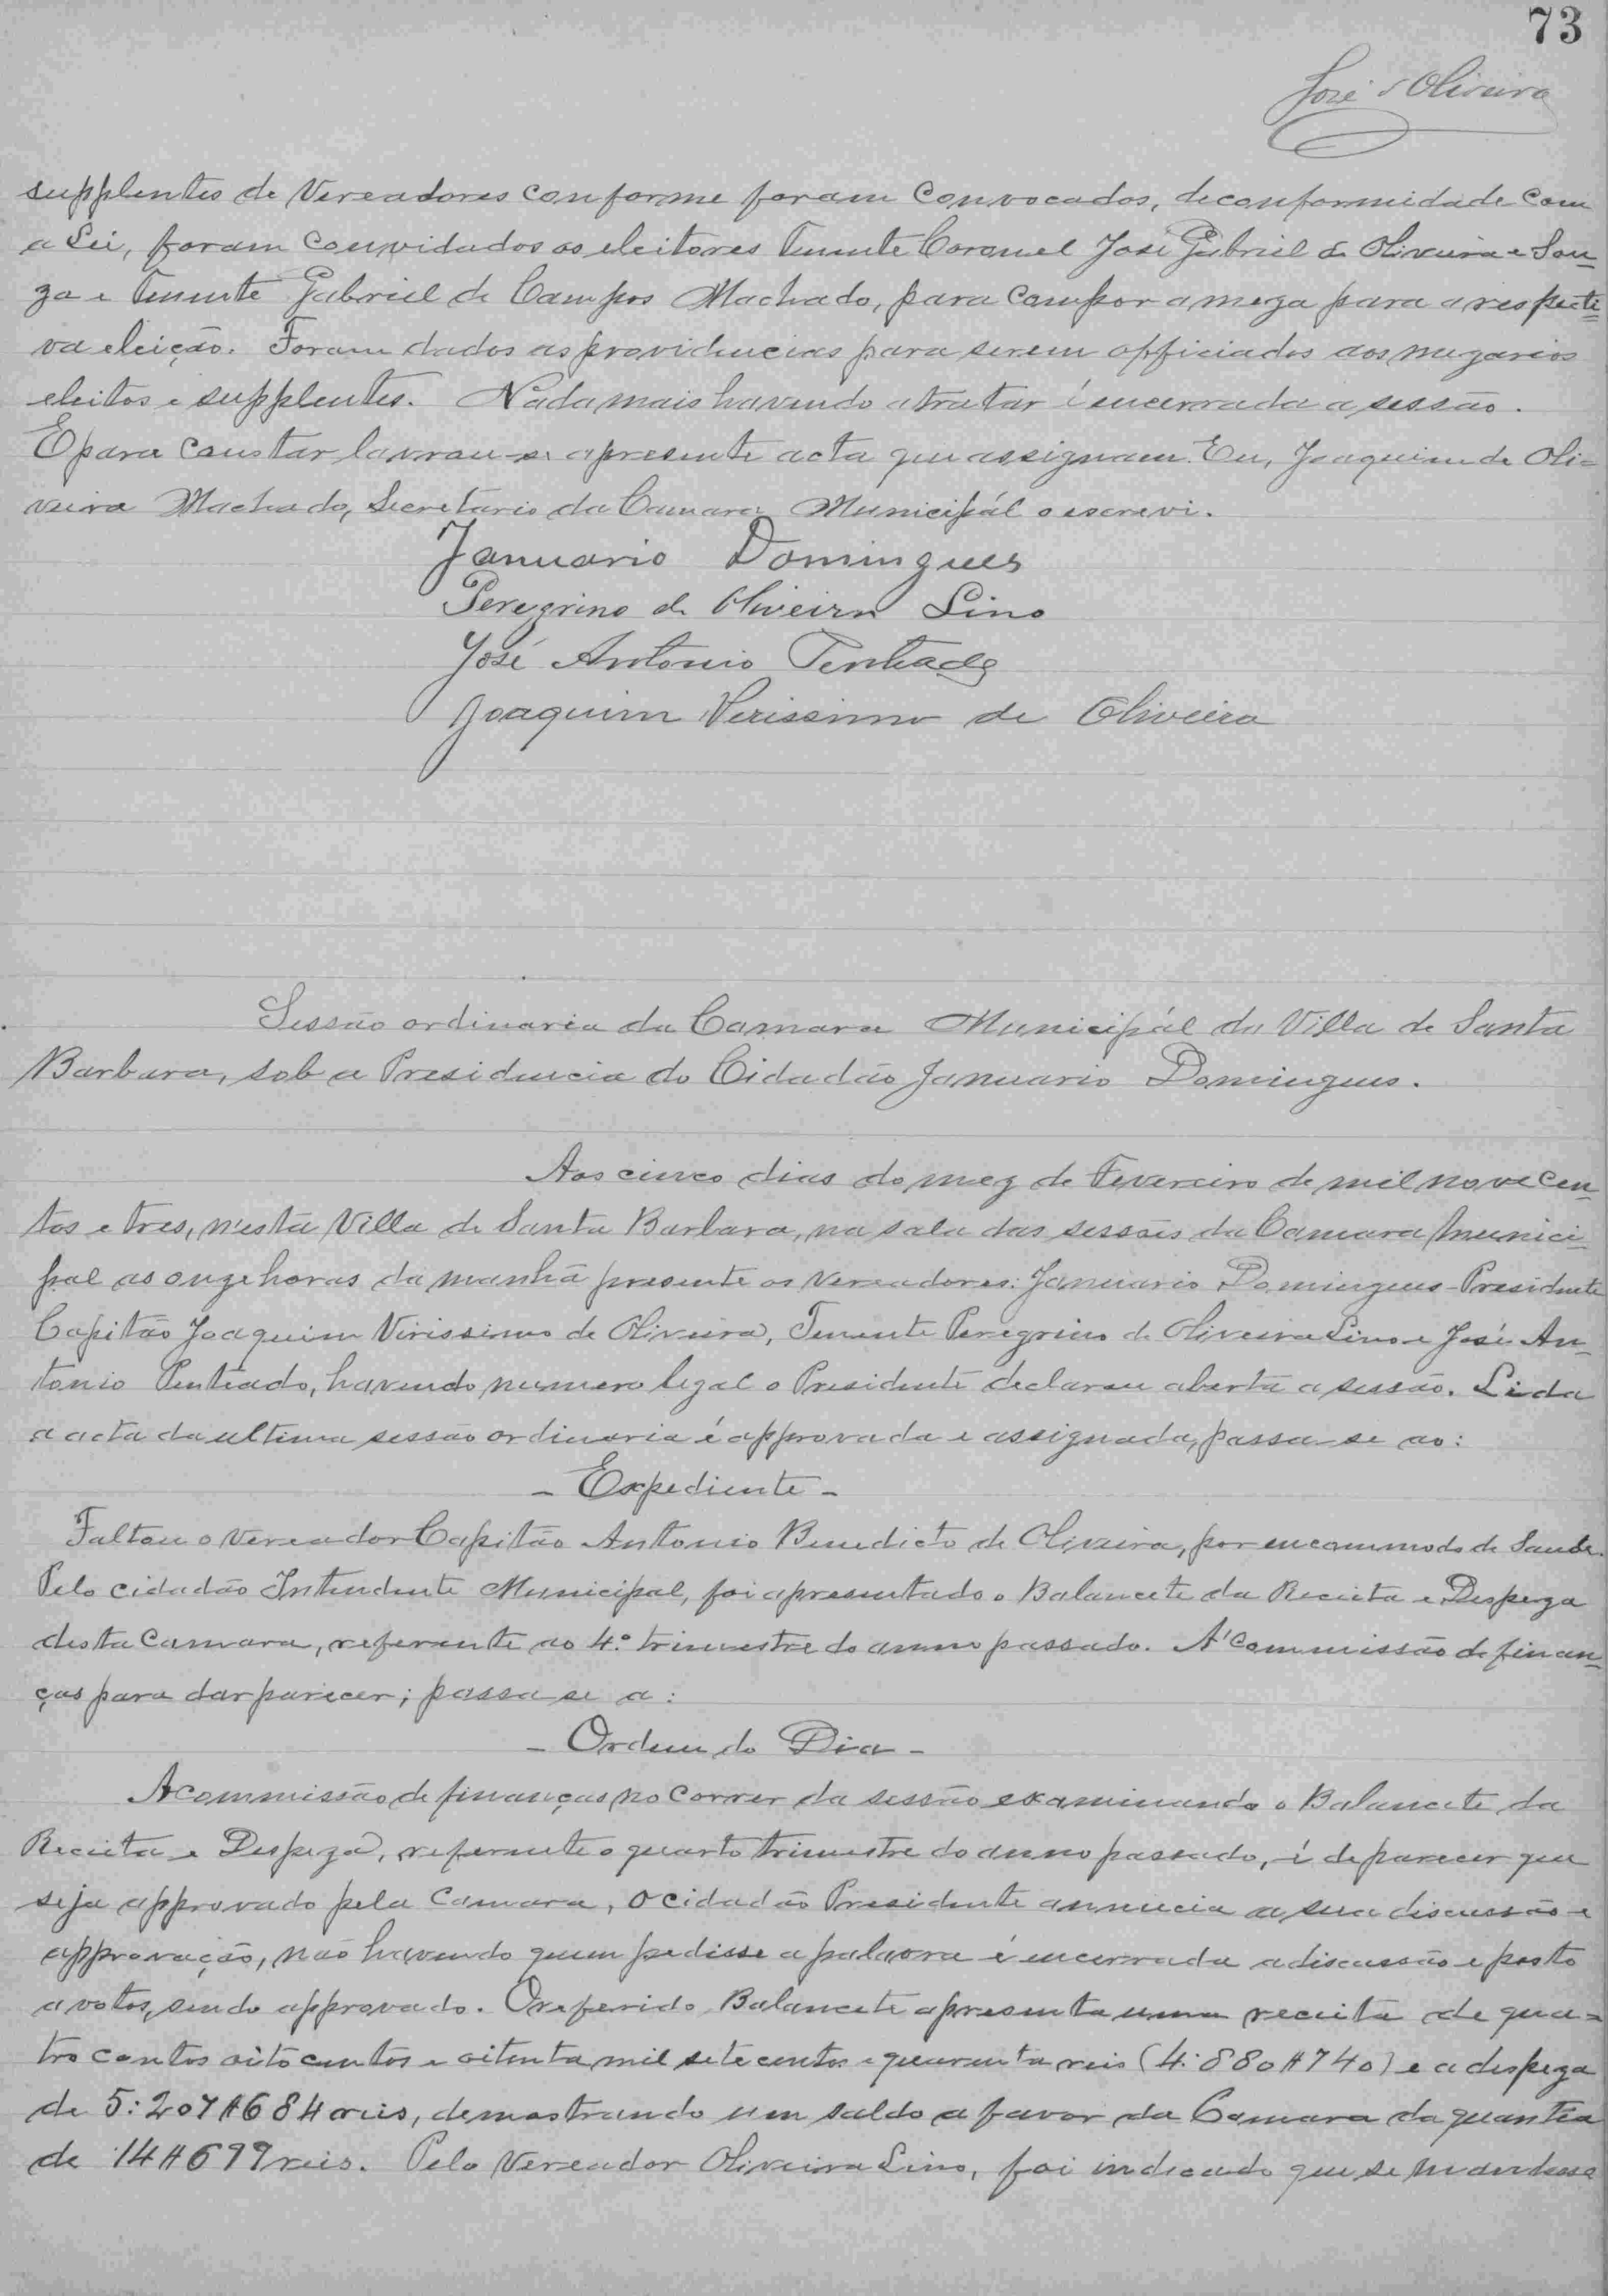 73
José d'Oliveira
supplentes de Vereadores conforme foram convocados, deconformidade com
a Lei, foram convidados os eleitores Tenente Coronel José Gabriel de Oliveira e Sou-
za e Tenente Gabriel de Campos Machado, para compor a meza para a respecti=
va eleição. Foram dados as providencias para serem officiados aos mezarios
eleitos e supplentes. Nada mais havendo a tratar é encerrada a sessão.
E para constar lavrou-se apresente acta que assignam. Eu, Joaquim de Oli=
veira Machado, Secretario da Camara Municipál o escrevi.
Januario Domingues
Peregrino de Oliveira Lino
José Antonio Penteado
Joaquim Verissimo de Oliveira
Sessão ordinaria da Camara Municipál da Villa de Santa
Barbara, sob a Presidencia do Cidadão Januario Domingues.
Aos cinco dias do mez de Fevereiro de mil nove cen-
tos e tres, n'esta Villa de Santa Barbara, na sala das sessões da Camara Munici-
pal as onze horas da manhã presente os Vereadores: Januario Domingues - Presidente
Capitão Joaquim Virissimo de Oliveira, Tenente Peregrino de Oliveira Lino e José An-
tonio Penteado, havendo numero legal o Presidente declarou aberta a sessão. Lida
a acta da ultima sessão ordinaria é approvada e assignada, passa-se ao:
- Expediente -
Faltou o Vereador Capitão Antonio Benedicto de Oliveira, por encommodo de Saude.
Pelo cidadão Intendente Municipal, foi apresentado o Balancete da Receita e Despeza
desta Camara, referente ao 4.º trimestre do anno passado. A' Commissão de finan-
ças para dar parecer; passa-se a:
- Ordem do Dia -
A commissão de finanças no correr da sessão examinando o Balancete da
Receita e Despeza, referente o quarto trimestre do anno passado, é de parecer que
seja approvado pela Camara, o cidadão Presidente annuncia a sua discussão e
approvação, não havendo quem pedisse a palavra é encerrada a discussão e posto
a votos, sendo approvado. O referido Balancete apresenta uma receita de qua=
tro contos oito centos e oitenta mil sete centos e quarenta reis (4:880$740) e a despeza
de 5:207$684 reis, demostrando um saldo a favor da Camara da quantia
de 14$699 reis. Pelo Vereador Oliveira Lino, foi indicado que se mandasse